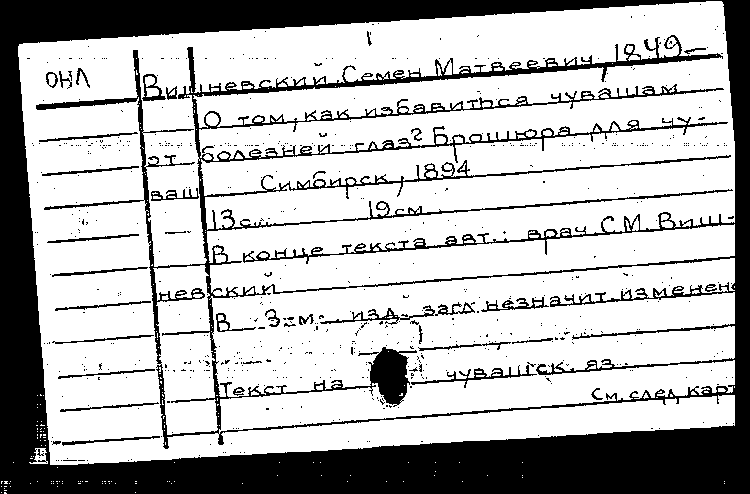 ОНЛ
Вишневский, Семен Матвеевич, 1849-
О том, как избавиться чувашам
от болезней глаз? Брошюра для чу-
ваш
Симбирск, 1894
13 с. 19 см
В конце текста авт.: врач С.М. Виш-
невский
В 3-м. изд. загл. незначит. изменено
Текст на чувашск. яз.
См. след. карт